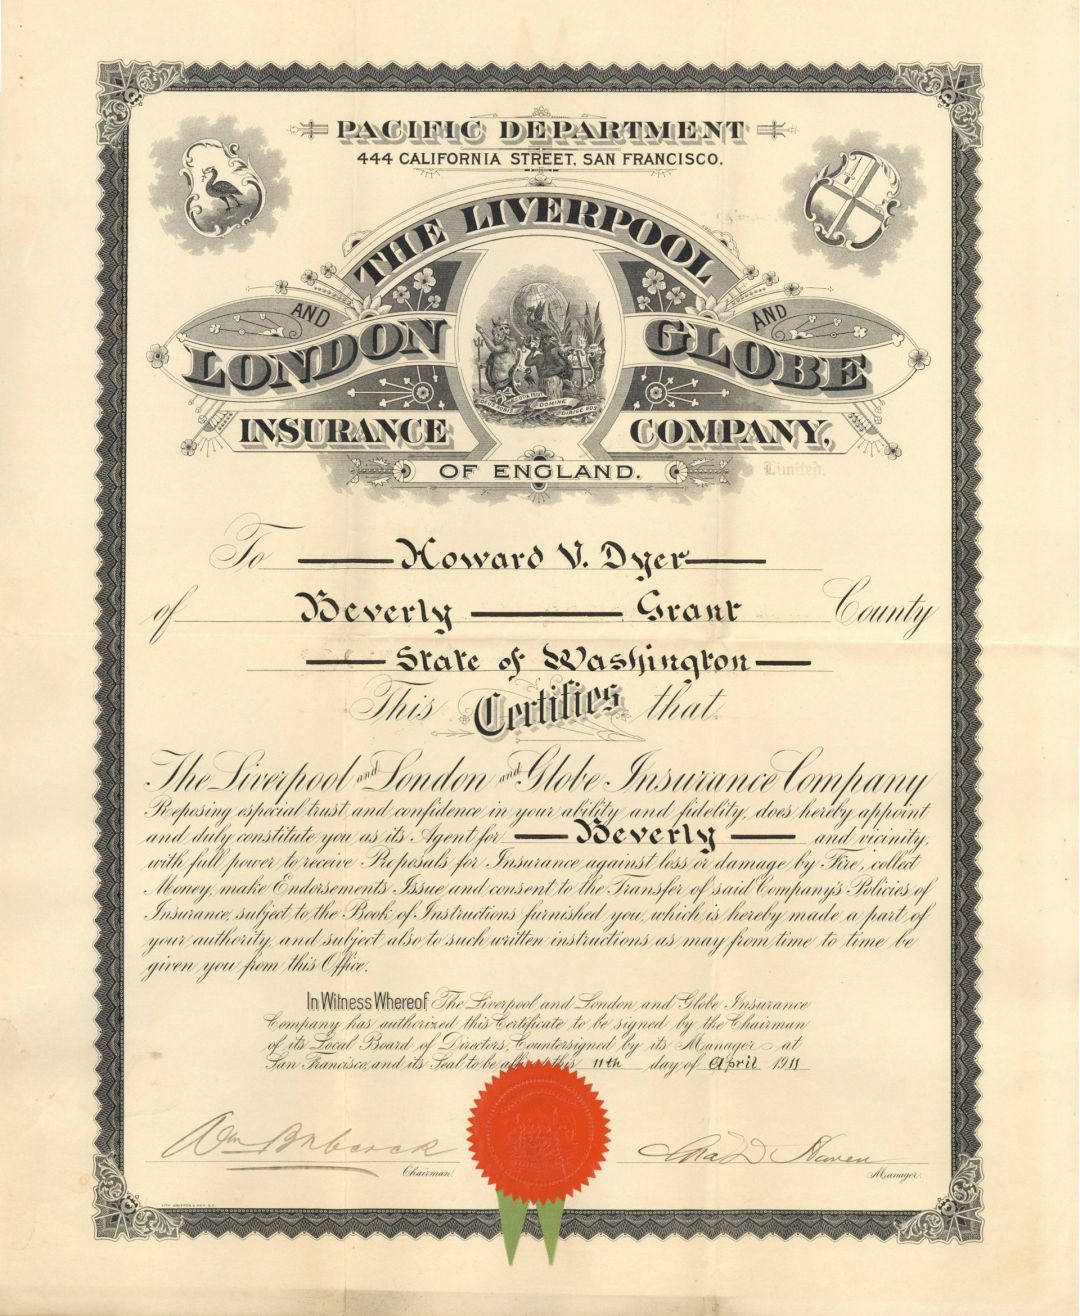 PACIFIC DEPARTMENT
444 CALIFORNIA STREET, SAN FRANCISCO.
THE LIVERPOOL
AND LONDON AND GLOBE
INSURANCE COMPANY,
OF ENGLAND.
Limited.
DEUS NOBIS HÆC OTIA FECIT DOMINE DIRIGE NOS
To Howard V. Dyer
of Beverly Grant County
State of Washington
This Certifies that
The Liverpool and London and Globe Insurance Company
Reposing especial trust and confidence in your ability and fidelity, does hereby appoint
and duly constitute you as its Agent for Beverly and vicinity,
with full power to receive Proposals for Insurance against loss or damage by Fire, collect
Money, make Endorsements Issue and consent to the Transfer of said Company's Policies of
Insurance, subject to the Book of Instructions furnished you, which is hereby made a part of
your authority, and subject also to such written instructions as may from time to time be
given you from this Office.
In Witness Whereof The Liverpool and London and Globe Insurance
Company has authorized this Certificate to be signed by the Chairman
of its Local Board of Directors, Countersigned by its Manager at
San Francisco, and its Seal to be affixed this 11th day of April 1911
Wm Babcock
Chairman.
Manager.